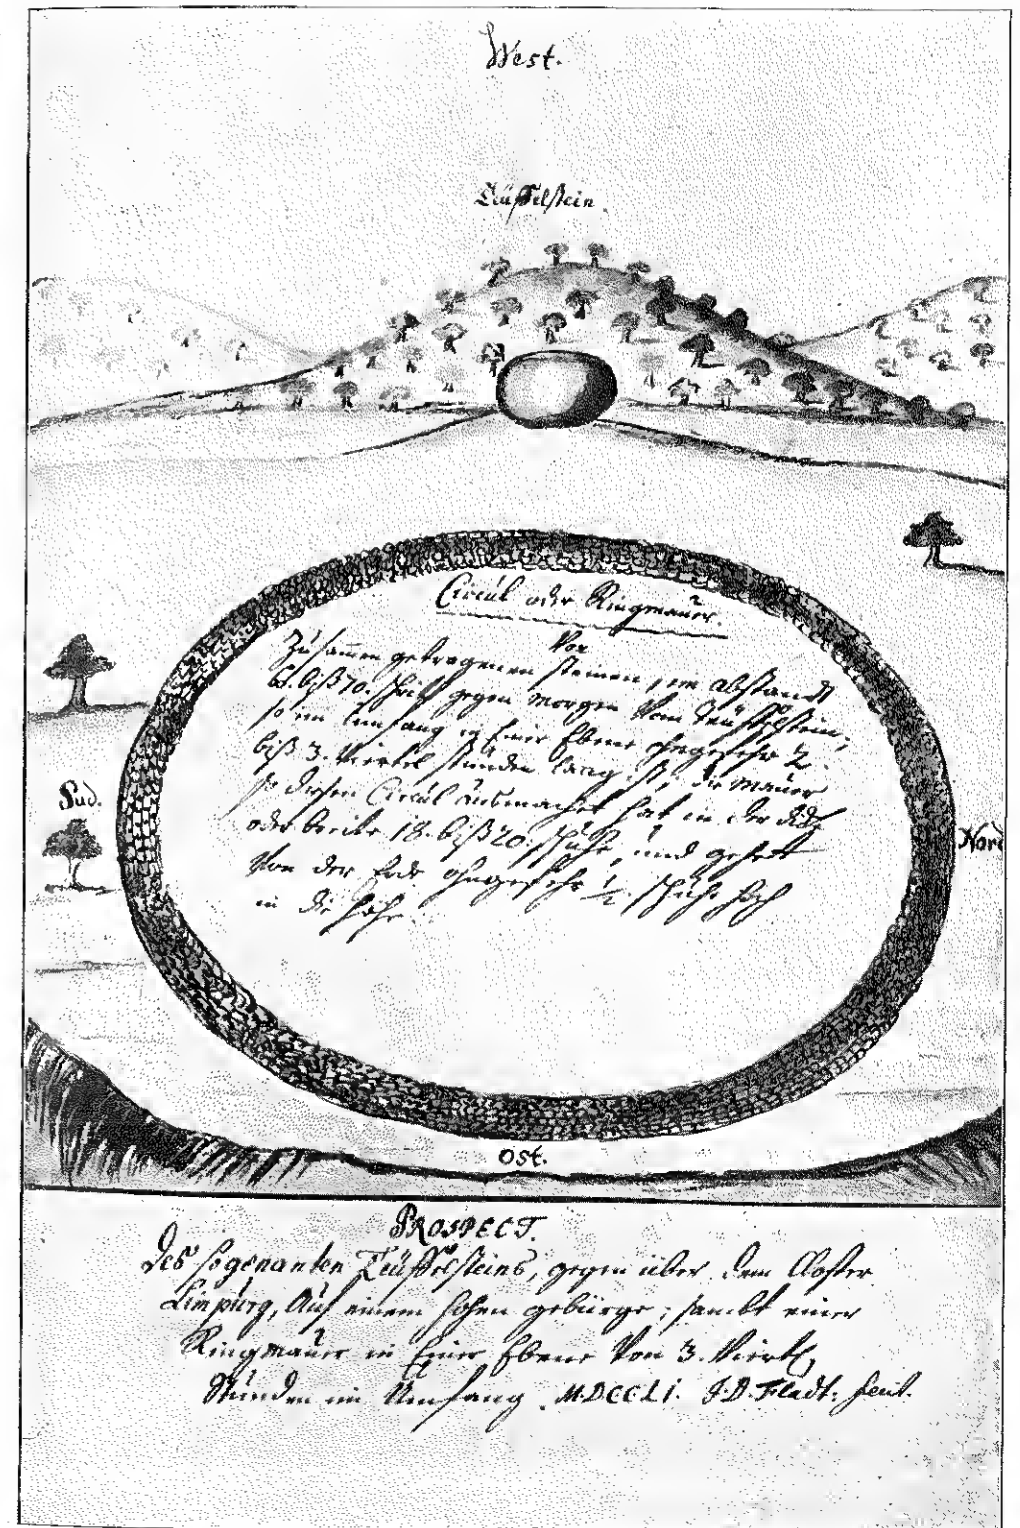 West.
Teüffelstein.
Circul oder Ringmaŭer.
Von
Zusam̄en getragenen steinen, im abstandt
biß 70. schuh gegen morgen Vom Teüffelstein,
so im Umfang in Einer Ebene ohngefehr 2.
biß 3. Viertel stunden lang ist, die maŭer
so diesen Circul ausmachet hat in der dick
oder breite 18. biß 20. schuhe, und gehet
Von der Erde ohngefehr ½ schuhe hoch
in die höhe.
Sud.
Nord
Ost.
PROSPECT.
Des sogenanten Teüffelsteins, gegen über dem Closter
Limpurg, Auf einem hohen gebürge; sambt einer
Ringmaŭer in Einer Ebene Von 3. Viertl,
Stunden im Umfang. MDCCLI. J.D. Fladt: fecit.